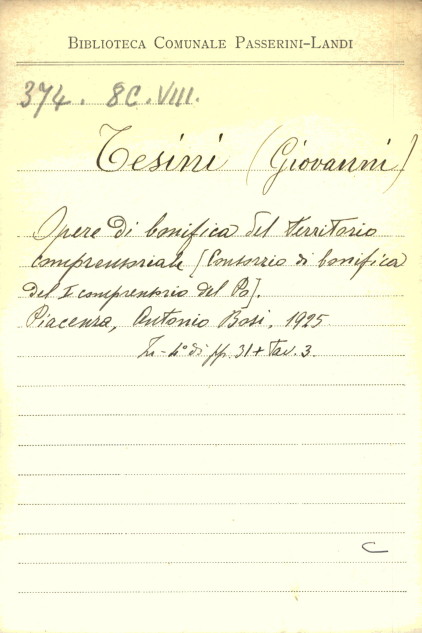 BIBLIOTECA COMUNALE PASSERINI-LANDI
374. 8C.VIII.
Tesini (Giovanni)
Opere di bonifica del territorio
comprensoriale [Consorzio di bonifica
del I comprensorio del Po].
Piacenza, Antonio Bosi, 1925
In-4° di pp. 31 + Tav. 3.
C